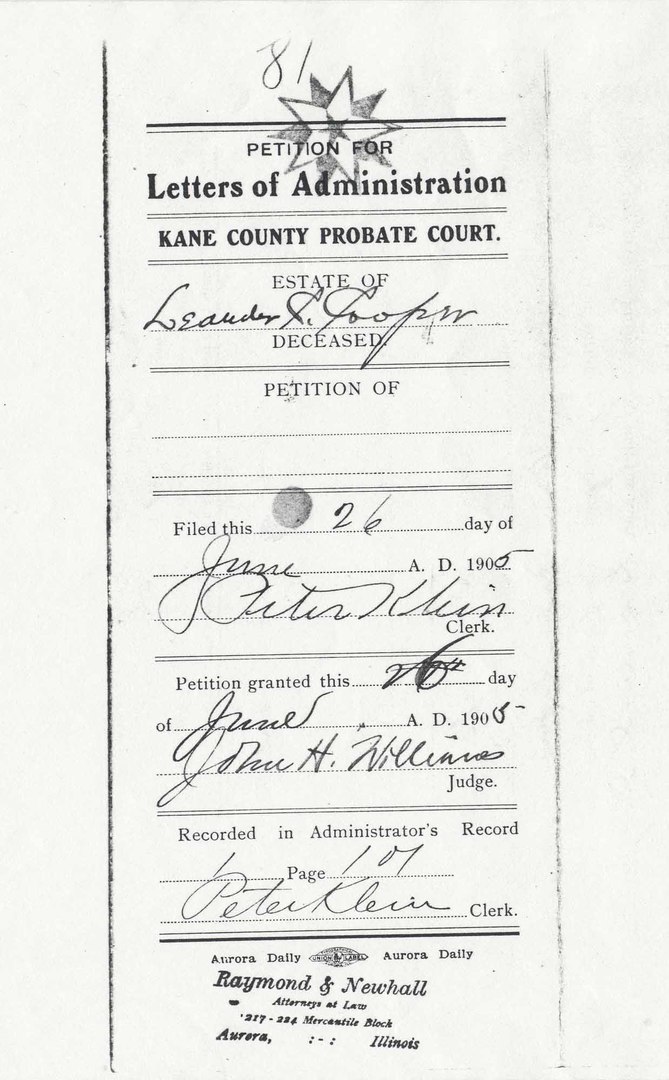 81
PETITION FOR
Letters of Administration
KANE COUNTY PROBATE COURT.
ESTATE OF
Leander S. Cooper
DECEASED.
PETITION OF
Filed this 26 day of
June A. D. 1905
Peter Klein
Clerk.
Petition granted this 26th day
of June A. D. 1905
John H. Williams
Judge.
Recorded in Administrator's Record
1 Page 107
Peter Klein Clerk.
Aurora Daily UNION LABEL Aurora Daily
Raymond & Newhall
Attorneys at Law
217-224 Mercantile Block
Aurora, :-: Illinois